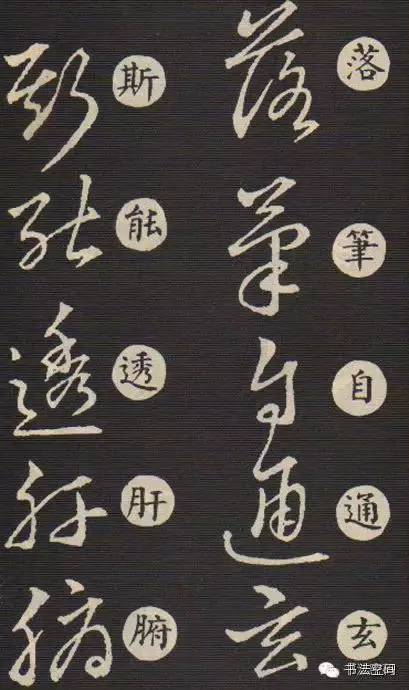 落筆自通玄
斯能透肝腑
书法密码